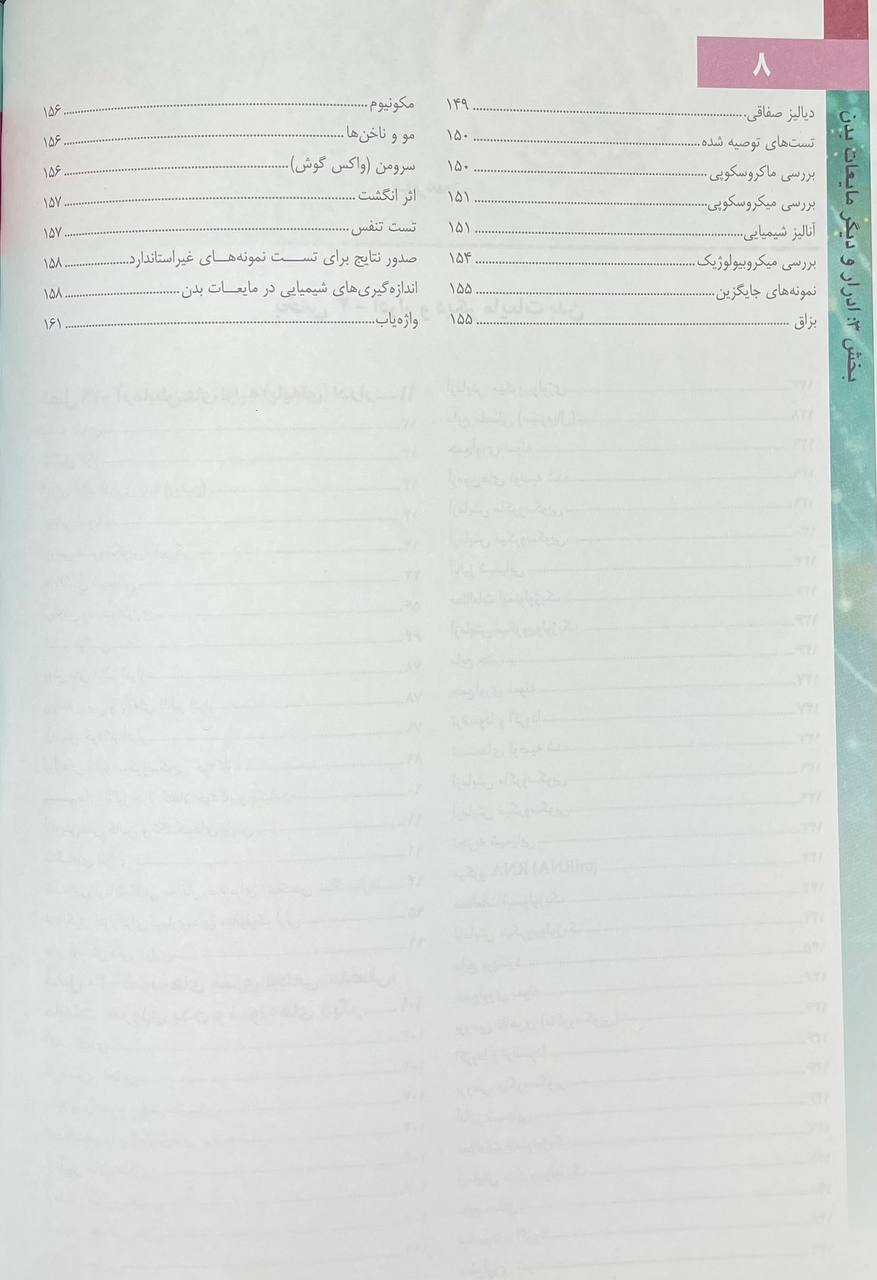 ۸
بخش ۳: ادرار و دیگر مایعات بدن
دیالیز صفاقی ۱۴۹
تست‌های توصیه شده ۱۵۰
بررسی ماکروسکوپی ۱۵۰
بررسی میکروسکوپی ۱۵۱
آنالیز شیمیایی ۱۵۱
بررسی میکروبیولوژیک ۱۵۴
نمونه‌های جایگزین ۱۵۵
بزاق ۱۵۵
مکونیوم ۱۵۶
مو و ناخن‌ها ۱۵۶
سرومن (واکس گوش) ۱۵۶
اثر انگشت ۱۵۷
تست تنفس ۱۵۷
صدور نتایج برای تست نمونه‌های غیراستاندارد ۱۵۸
اندازه‌گیری‌های شیمیایی در مایعات بدن ۱۵۸
واژه‌یاب ۱۶۱